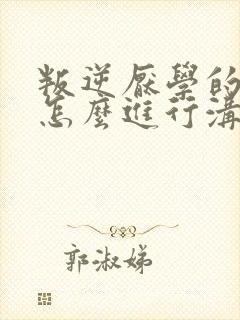 叛逆厭學的
怎麼進行溝
郭淑娣